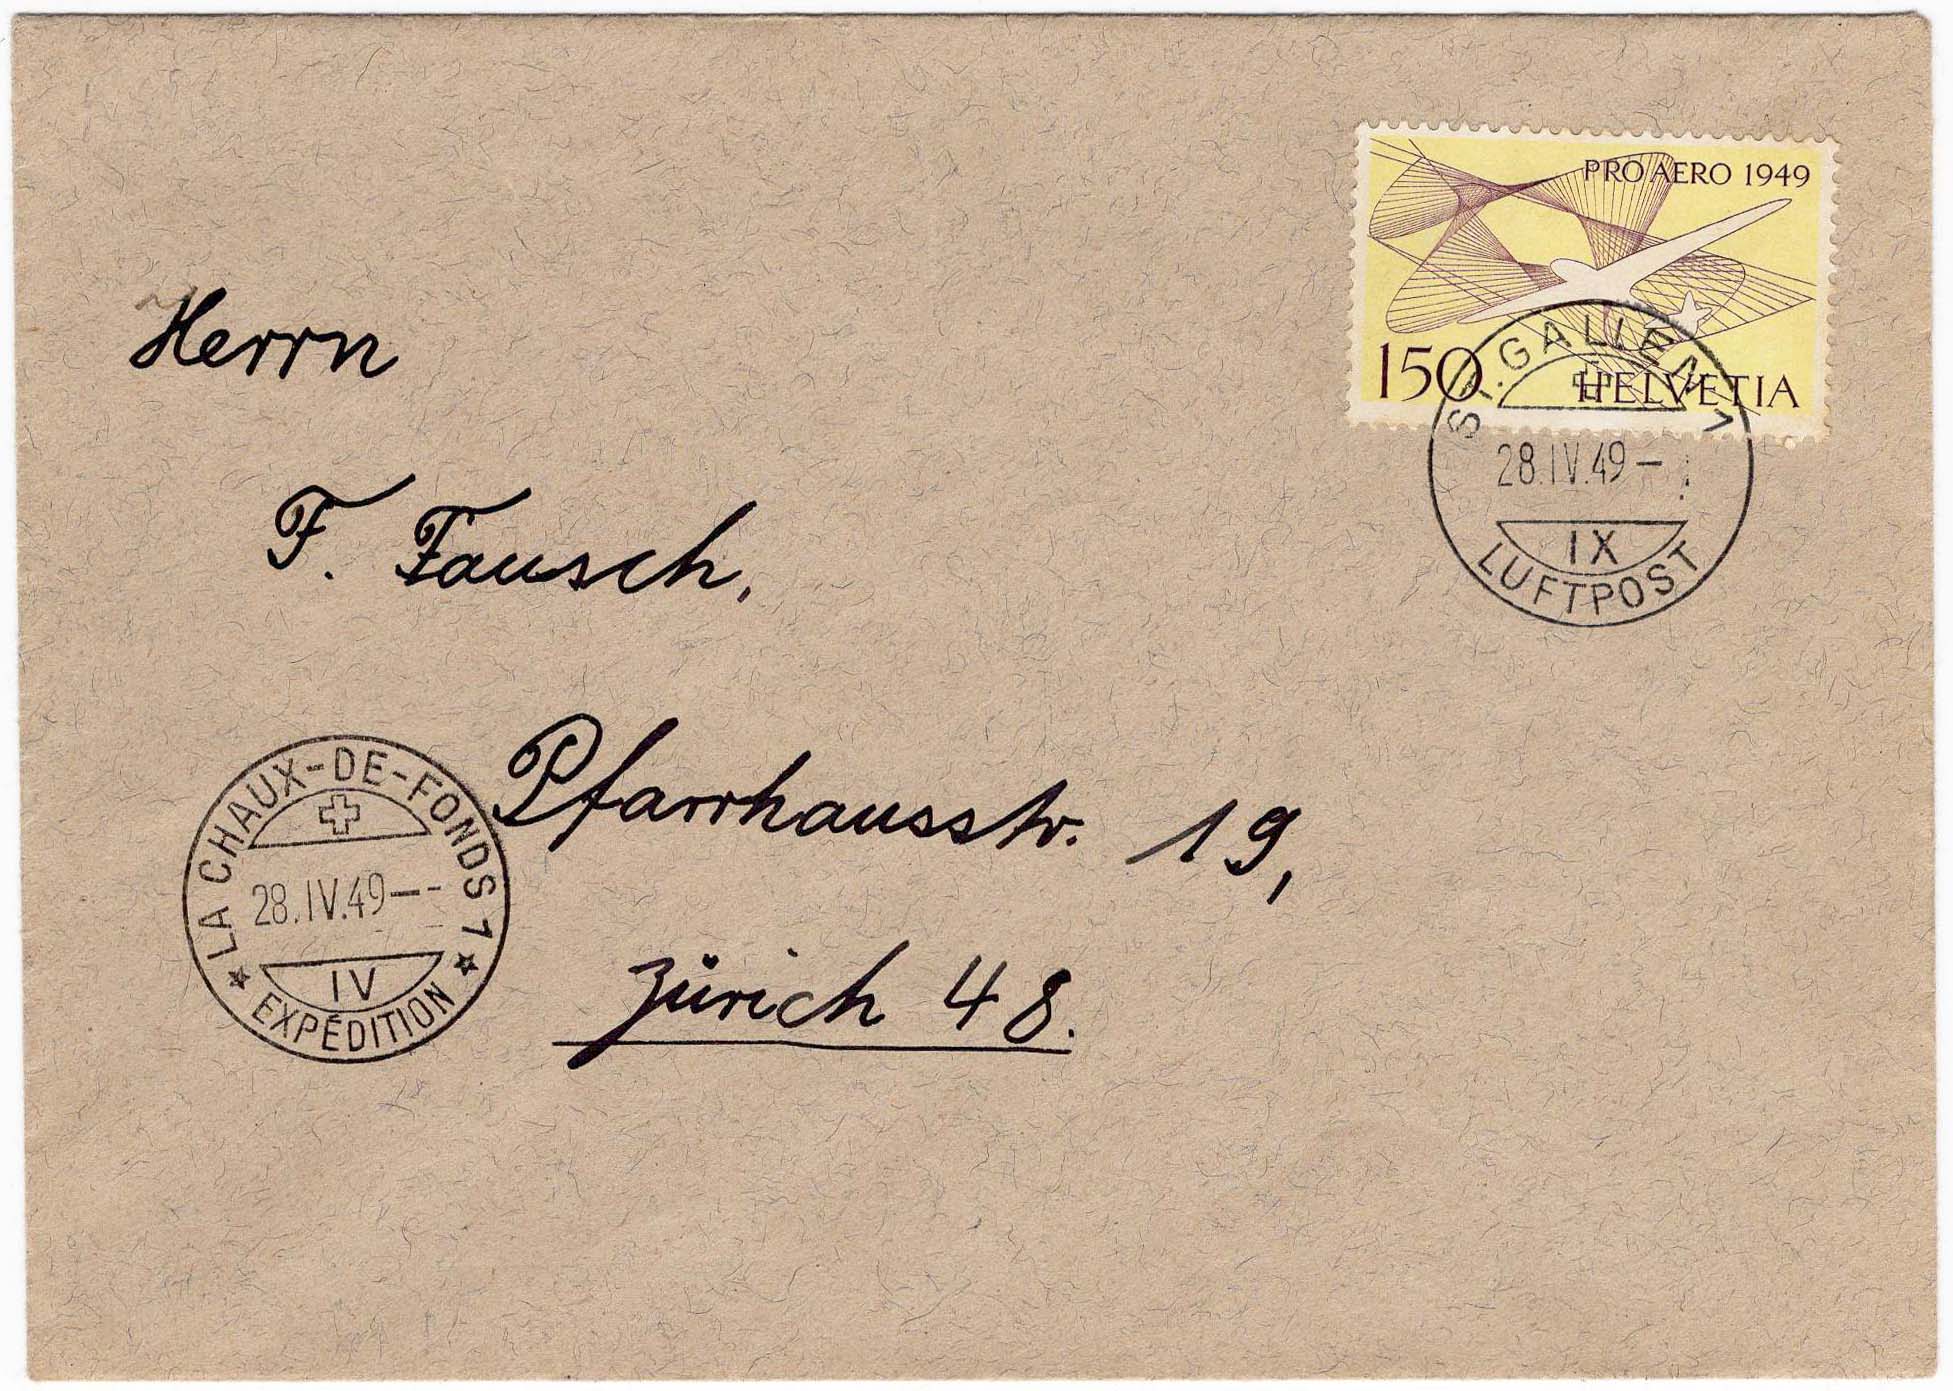 PRO AERO 1949
150 HELVETIA
ST. GALLEN 1
28.IV.49–
IX
LUFTPOST
Herrn
F. Fausch,
Pfarrhausstr. 19,
Zürich 48.
LA CHAUX-DE-FONDS 1
28.IV.49–-
IV
EXPÉDITION